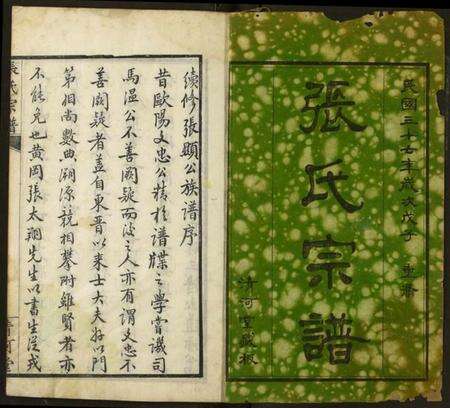 民國三十七年歲次戊子 重脩
張氏宗譜
清河堂藏板
續修張顯公族譜序
昔歐陽文忠公精於譜牒之學嘗議司
馬溫公不善闕疑而後之人亦有謂文忠不
善闕疑者蓋自東晉以來士大夫好以門
第相尚數典溯源競相攀附雖賢者亦
不能免也黃岡張太翔先生以書生從戎
張氏宗譜
清河堂